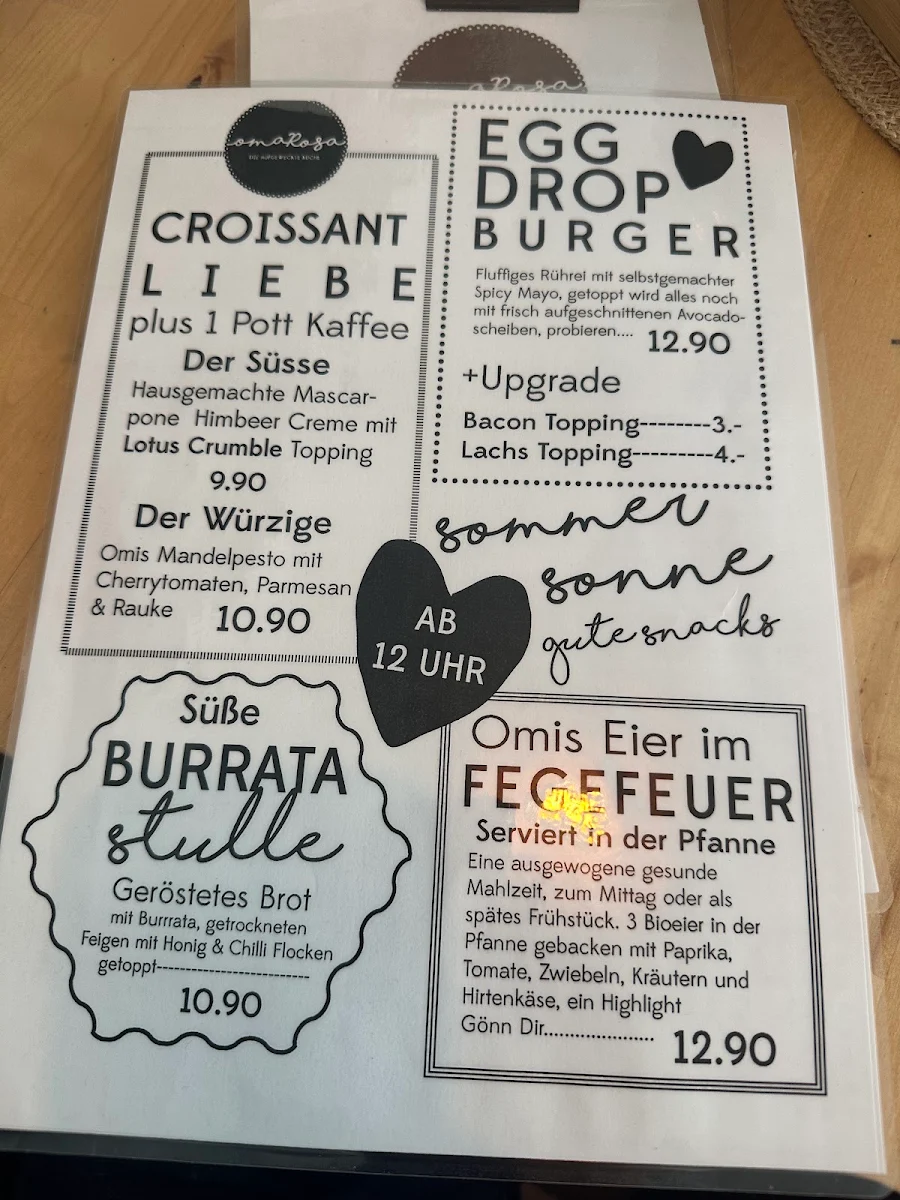 omaRosa
omaRosa
CROISSANT
LIEBE
plus 1 Pott Kaffee
Der Süsse
Hausgemachte Mascar-
pone Himbeer Creme mit
Lotus Crumble Topping
9.90
Der Würzige
Omis Mandelpesto mit
Cherrytomaten, Parmesan
& Rauke 10.90
EGG
DROP
BURGER
Fluffiges Rührei mit selbstgemachter
Spicy Mayo, getoppt wird alles noch
mit frisch aufgeschnittenen Avocado-
scheiben, probieren.... 12.90
+Upgrade
Bacon Topping--------3.-
Lachs Topping---------4.-
sommer
sonne
gute snacks
AB
12 UHR
Süße
BURRATA
stulle
Geröstetes Brot
mit Burrrata, getrockneten
Feigen mit Honig & Chilli Flocken
getoppt----------------------------
10.90
Omis Eier im
FEGEFEUER
Serviert in der Pfanne
Eine ausgewogene gesunde
Mahlzeit, zum Mittag oder als
spätes Frühstück. 3 Bioeier in der
Pfanne gebacken mit Paprika,
Tomate, Zwiebeln, Kräutern und
Hirtenkäse, ein Highlight
Gönn Dir...................... 12.90